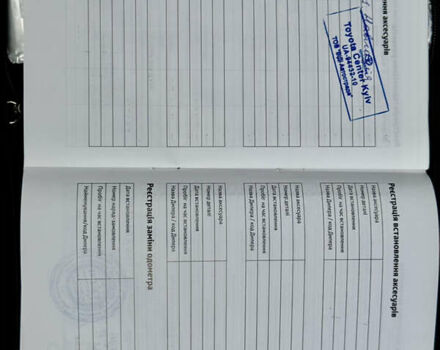 ення аксесуарів
Toyota Center Kyiv
UA-94432-10
ТОВ "ВІДІ Автострада"
Реєстрація встановлення аксесуарів
Назва аксесуара
Номер деталі
Дата встановлення
Пробіг на час встановлення
Назва Дилера / код Дилера
Назва аксесуара
Номер деталі
Дата встановлення
Пробіг на час встановлення
Назва Дилера / код Дилера
Назва аксесуара
Номер деталі
Дата встановлення
Пробіг на час встановлення
Назва Дилера / код Дилера
Реєстрація заміни одометра
Дата встановлення
Номер наряд-замовлення
Пробіг на час встановлення
Найменування/код Дилера